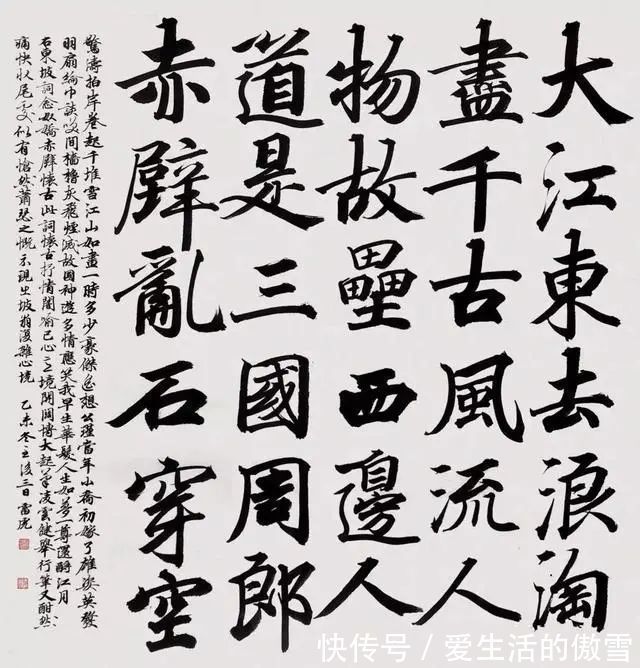 大江東去浪淘
盡千古風流人
物故壘西邊人
道是三國周郎
赤壁亂石穿空
驚濤拍岸卷起千堆雪江山如畫一時多少豪傑遙想公瑾當年小喬初嫁了雄姿英發
羽扇綸巾談笑間檣櫓灰飛煙滅故國神遊多情應笑我早生華髮人生如夢一尊還酹江月
右東坡詞念奴嬌赤壁懷古此詞懷古抒情闊喻己心之境開闊博大起筆凌雲健舉行筆又酣然
痛快收尾處似有愴然蕭瑟之慨亦現出坡翁複雜心境 乙未冬立後三日
快传号/爱生活的傲雪